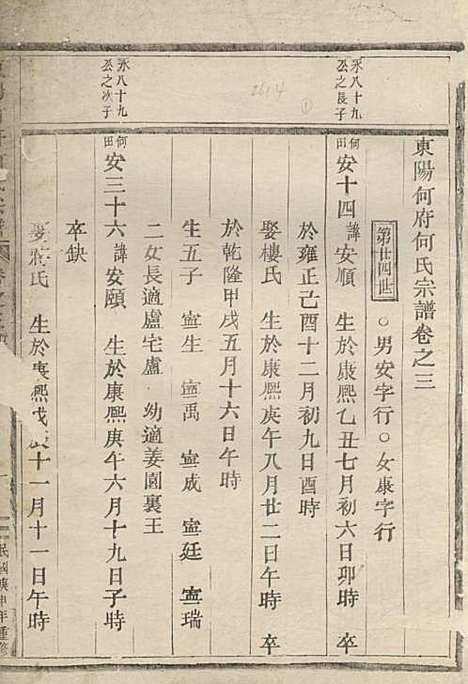 東陽何府何氏宗譜卷之三
第廿四世 ○男安字行○女康字行
永八十九公之長子
何田 安十四 諱安順 生於康熙乙丑七月初六日卯時 卒
於雍正己酉十二月初九日酉時
娶樓氏 生於康熙庚午八月廿二日午時 卒
於乾隆甲戌五月十六日午時
生五子 寍生 寍禹 寍成 寍廷 寍瑞
二女長適盧宅盧 幼適姜園裏王
永八十九公之次子
何田 安三十六 諱安頤 生於康熙庚午六月十九日子時
卒缺
娶蔣氏 生於康熙戊 十一月十一日午時
民國庚申年重修
2614
①